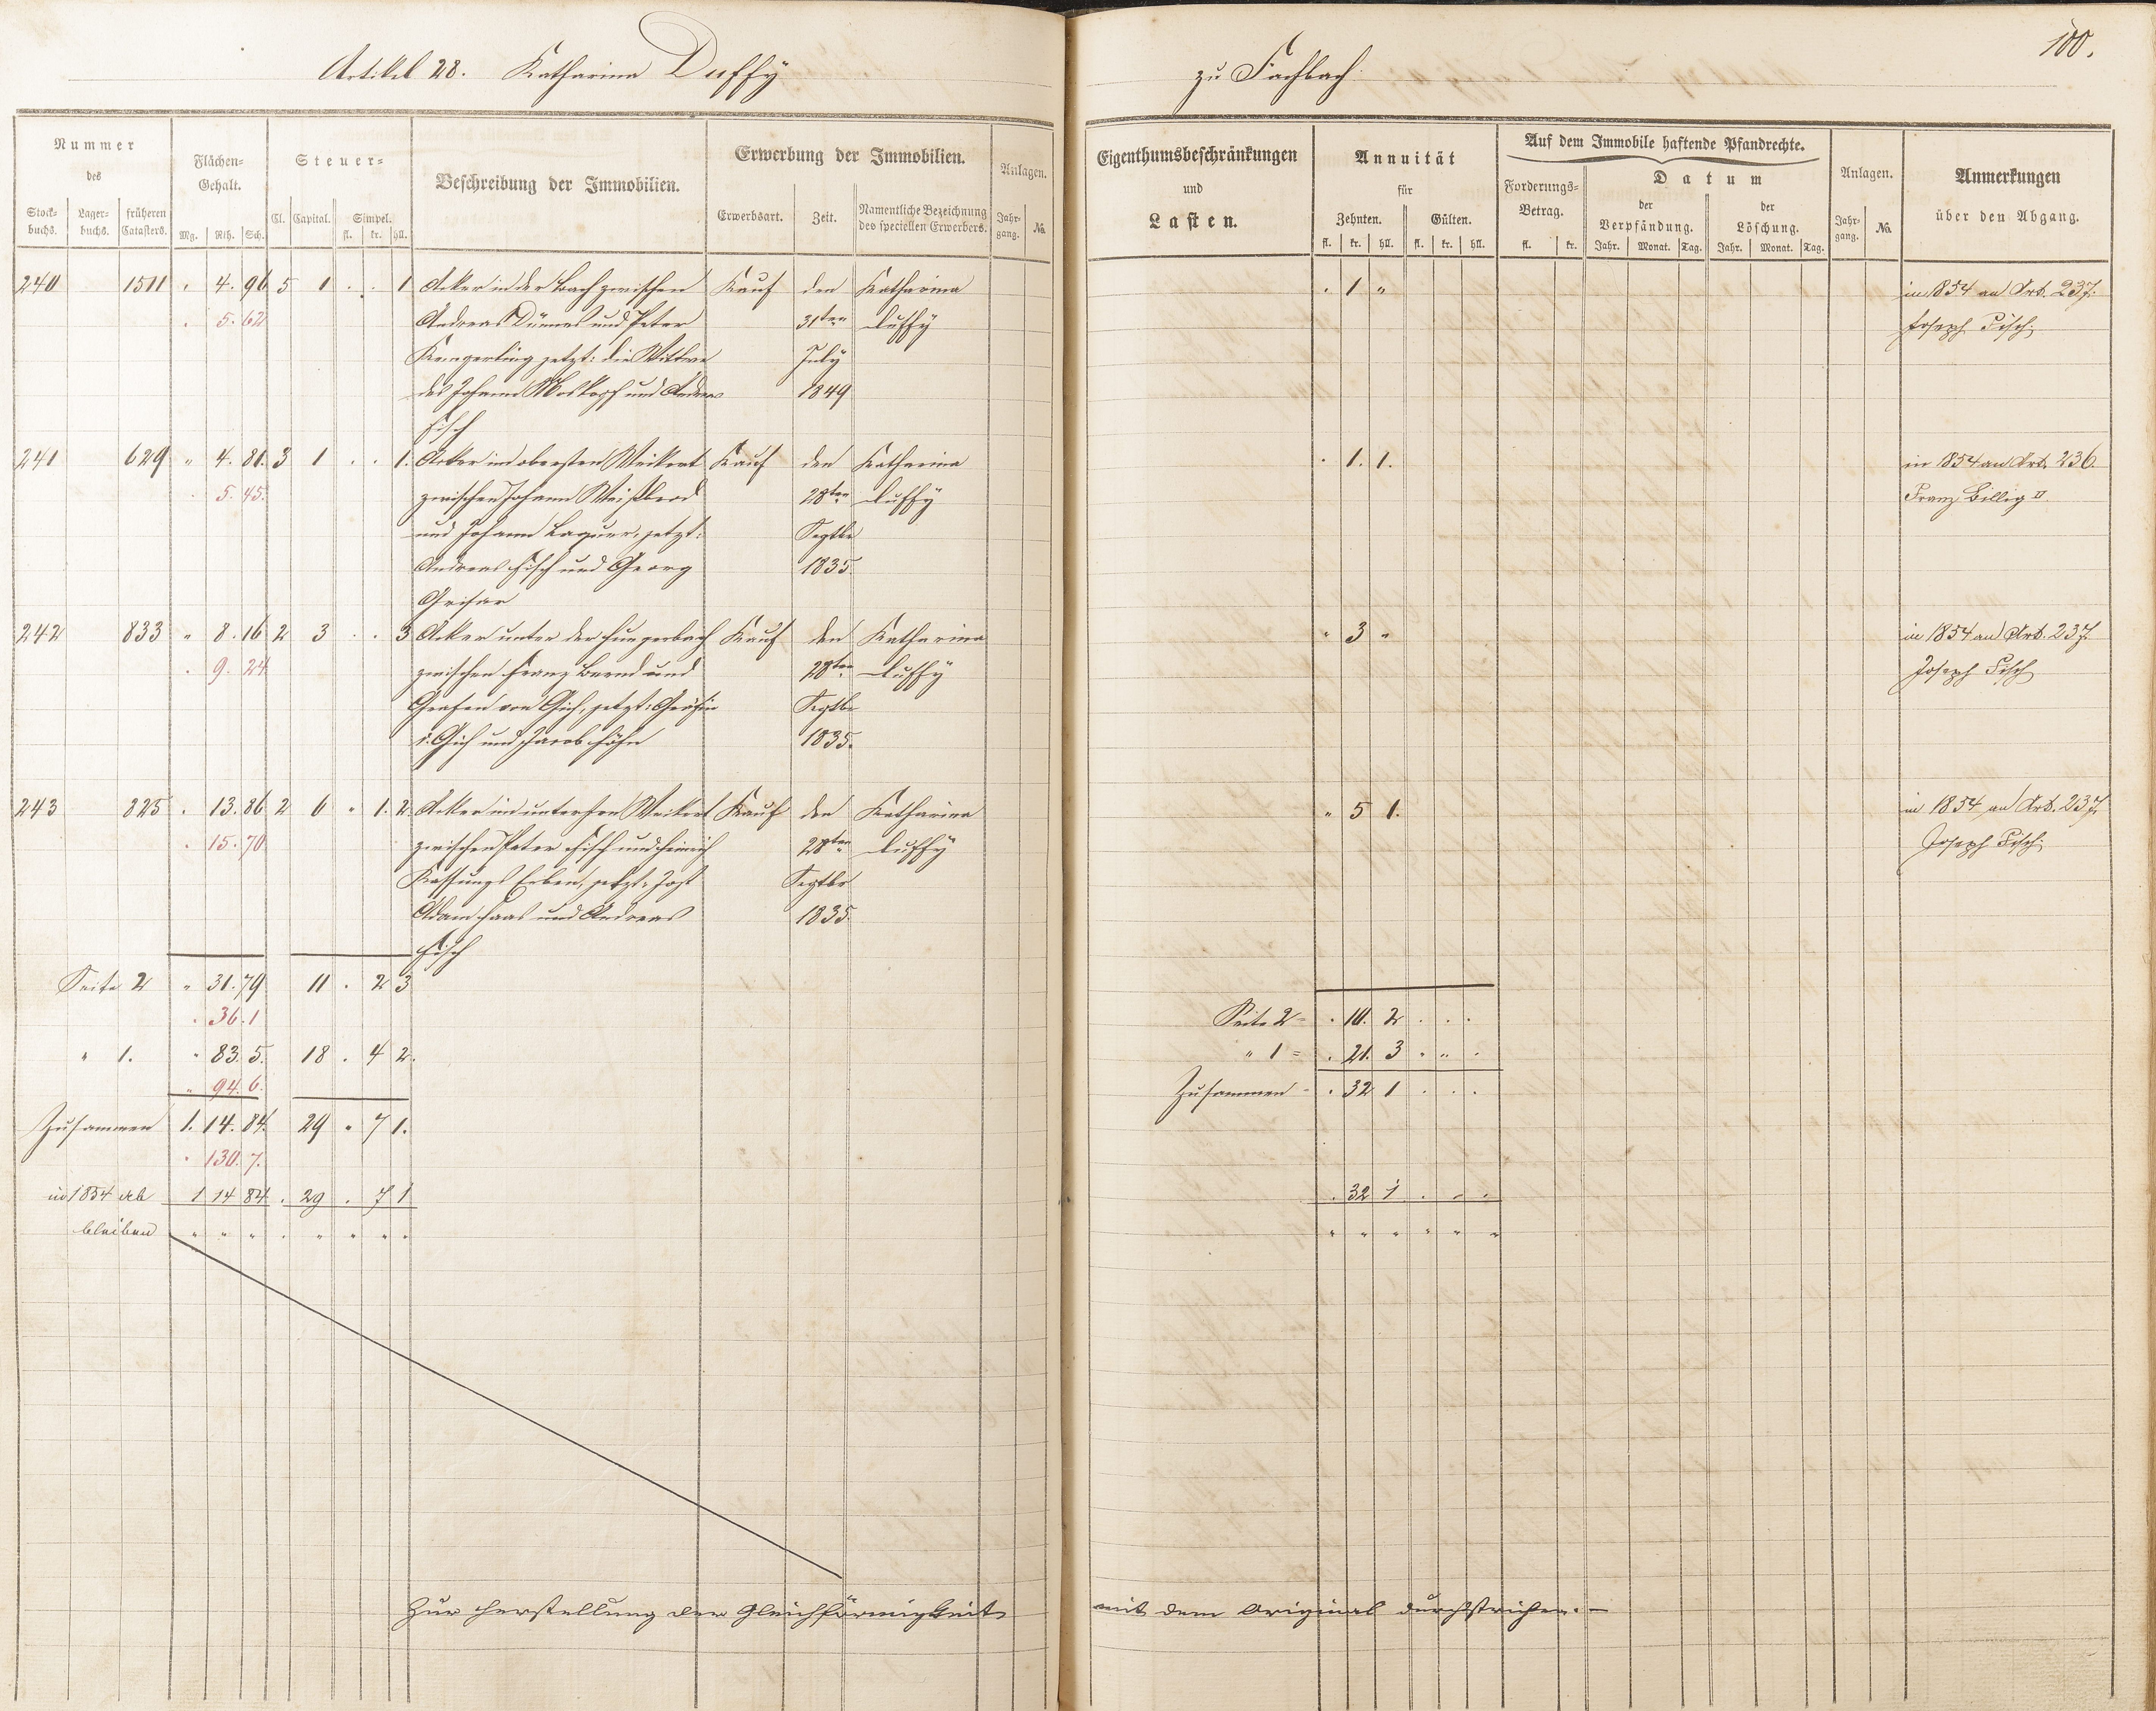 100.
Artikel 28. Katharina Duffy zu Fachbach
Nummer des
Stockbuchs. Lagerbuchs. früheren Catasters.
Flächen-Gehalt.
Mg. Rth. Sch.
Steuer-
Cl. Capital. Simpel.
fl. kr. hll.
Beschreibung der Immobilien.
Erwerbung der Immobilien.
Erwerbsart. Zeit. Namentliche Bezeichnung des speciellen Erwerbers.
Anlagen.
Jahrgang. №
Eigenthumsbeschränkungen und Lasten.
Annuität für
Zehnten. Gülten.
fl. kr. hll. fl. kr. hll.
Auf dem Immobile haftende Pfandrechte.
Forderungs-Betrag.
fl. kr.
Datum
der Verpfändung. der Löschung.
Jahr. Monat. Tag. Jahr. Monat. Tag.
Anlagen.
Jahrgang. №
Anmerkungen über den Abgang.
240 1511 . 4. 96 5 1 . . 1 Acker in der Bach zwischen Kauf den Katharina . 1 " in 1854 an Art. 237.
. 5. 62 Andreas und Peter 31ten Duffy Joseph Fisch.
jetzt: die Wittwe July
des Johann Moskopf und Andreas 1849
Fisch
241 629 " 4. 81. 3 1 . . 1. Acker im obersten Weikert Kauf den Katharina . 1. 1. in 1854 an Art. 236.
. 5. 45. zwischen Johann Weißbrod 28ten Duffy Franz Billig II.
und Johann jetzt: Septbr
Andreas Fisch und Georg 1835.
Grisar
242 833 " 8. 16 2 3 . . 3 Acker unter der Hungerbach Kauf den Katharina " 3 " in 1854 an Art. 237.
. 9. 24. zwischen Franz und 28ten Duffy Joseph Fisch
Grafen von jetzt: Gräfin Septbr
und Jacob Höhn 1835.
243 825 . 13. 86 2 6 " 1. 2. Acker im untersten Weikert Kauf den Katharina " 5 1. in 1854 an Art. 237.
. 15. 70 zwischen Peter Fisch und Heinrich 28ten Duffy Joseph Fisch.
Erben, jetzt: Septbr
Adam Haas und Andreas 1835.
Fisch
Seite 2 " 31. 79 11 . 2 3 Seite 2 = . 10. 2 . . .
. 36. 1
" 1. " 83. 5. 18 . 4 2. " 1 = . 21. 3 " " .
" 94. 6.
Zusammen 1. 14. 84. 29 " 7 1. Zusammen = . 32 1 . . .
. 130. 7.
in 1854 ab 1 14 84 . 29 . 7 1 . 32 1 . . .
bleiben " " " . " " " " " " " " " "
Zur Herstellung der Gleichförmigkeit mit dem Original durchstrichen. –